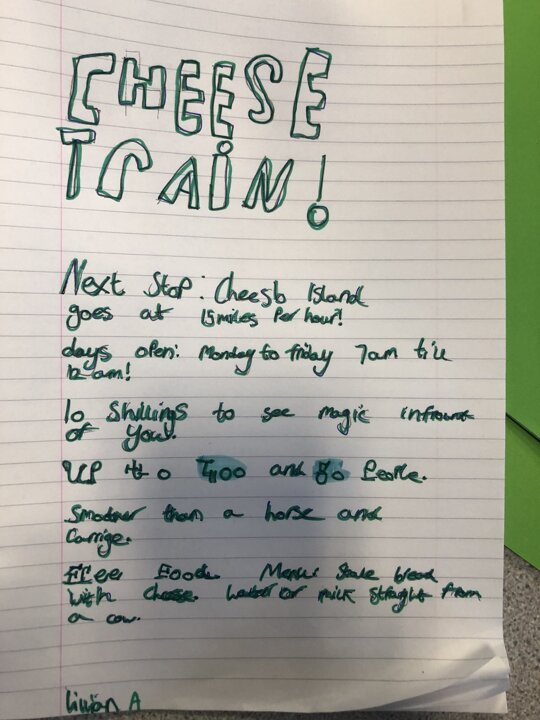 CHEESE
TRAIN!
Next Stop: Cheesb Island
goes at 15 miles Per hour!
days open: Monday to friday 7am till
12am!
10 Shillings to see magic infrount
of you.
UP to and 80 People.
Smoother than a horse and
Carrige.
FFee Food. Menu: Stale bread
with cheese. water or milk straght from
a cow.
A